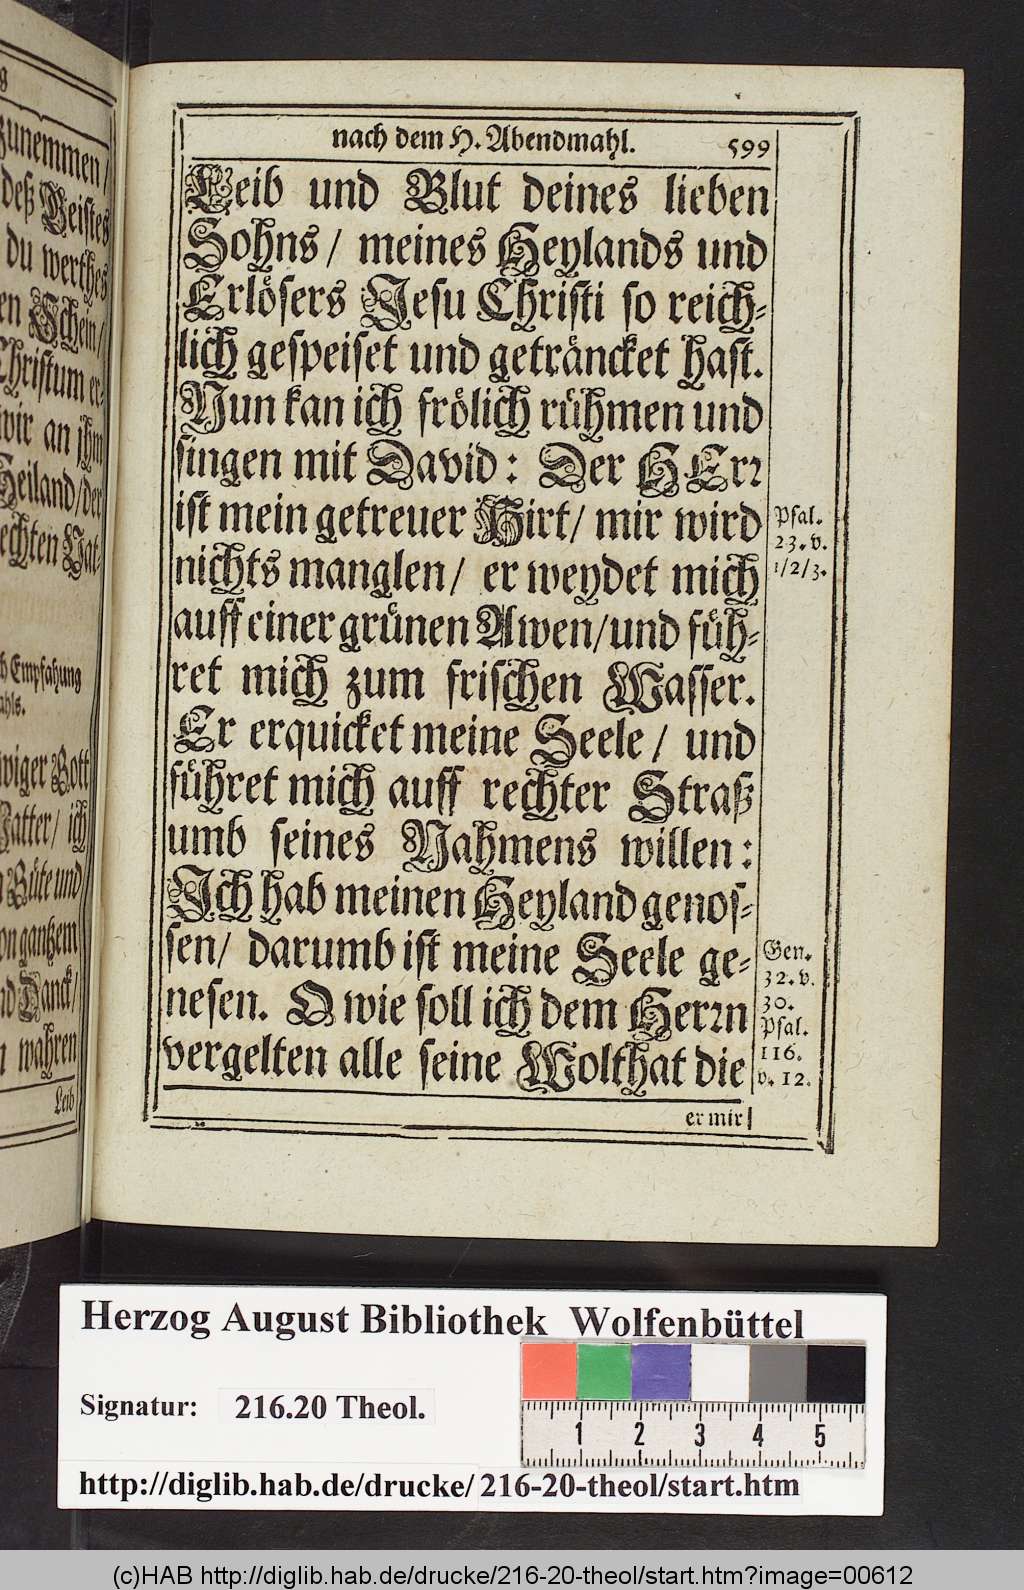 zunemmen/
deß Geistes
du werthes
en Schein/
Christum er-
wir an jhm
Heiland/der
echten Vat-
h Empfahung
ahls.
wiger Gott
Vatter/ ich
Güte und
on gantzem
nd Danck/
wahren
Leib
nach dem H. Abendmahl. 599
Leib und Blut deines lieben
Sohns/ meines Heylands und
Erlösers Jesu Christi so reich-
lich gespeiset und geträncket hast.
Nun kan ich frölich rühmen und
singen mit David: Der HErr
ist mein getreuer Hirt/ mir wird
nichts manglen/ er weydet mich
auff einer grünen Awen/und füh-
ret mich zum frischen Wasser.
Er erquicket meine Seele/ und
führet mich auff rechter Straß
umb seines Nahmens willen:
Ich hab meinen Heyland genos-
sen/ darumb ist meine Seele ge-
nesen. O wie soll ich dem Herrn
vergelten alle seine Wolthat die
er mir
Psal.
23. v.
1/2/3.
Gen.
32. v.
30.
Psal.
116.
v. 12.
Herzog August Bibliothek Wolfenbüttel
Signatur: 216.20 Theol.
1 2 3 4 5
http://diglib.hab.de/drucke/216-20-theol/start.htm
(c)HAB http://diglib.hab.de/drucke/216-20-theol/start.htm?image=00612